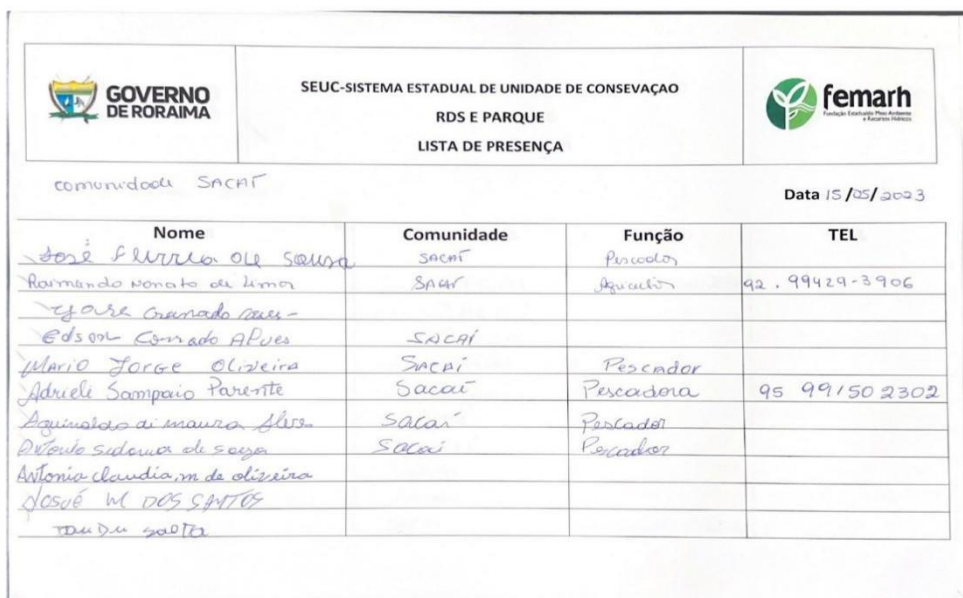 GOVERNO
DE RORAIMA
SEUC-SISTEMA ESTADUAL DE UNIDADE DE CONSEVAÇAO
RDS E PARQUE
LISTA DE PRESENÇA
femarh
Fundação Estadual do Meio Ambiente
e Recursos Hídricos
comunidade SACAÍ
Data 15/05/2023
Nome Comunidade Função TEL
José de Sousa SACAÍ Pescador
Raimundo Nonato de Lima SACAÍ Agricultor 92. 99429-3906
Edson Conrado Alves SACAÍ
Mario Jorge Oliveira SACAÍ Pescador
Adriele Sampaio Parente Sacaí Pescadora 95 991502302
Aguinaldo di maura Alves Sacaí Pescador
Antonio de souza Sacaí Pescador
Antonia claudia, m de oliveira
Josué M DOS SANTOS